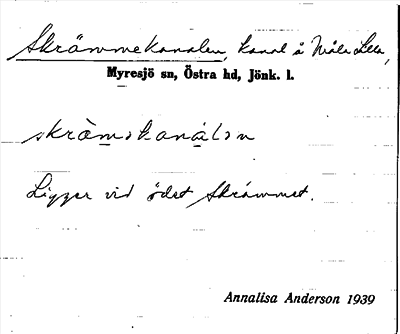 Skrämmekanalen, kanal å
Myresjö sn, Östra hd, Jönk. l.
skràmskanálɜn
Ligger vid ödet Skrämmet.
Annalisa Anderson 1939